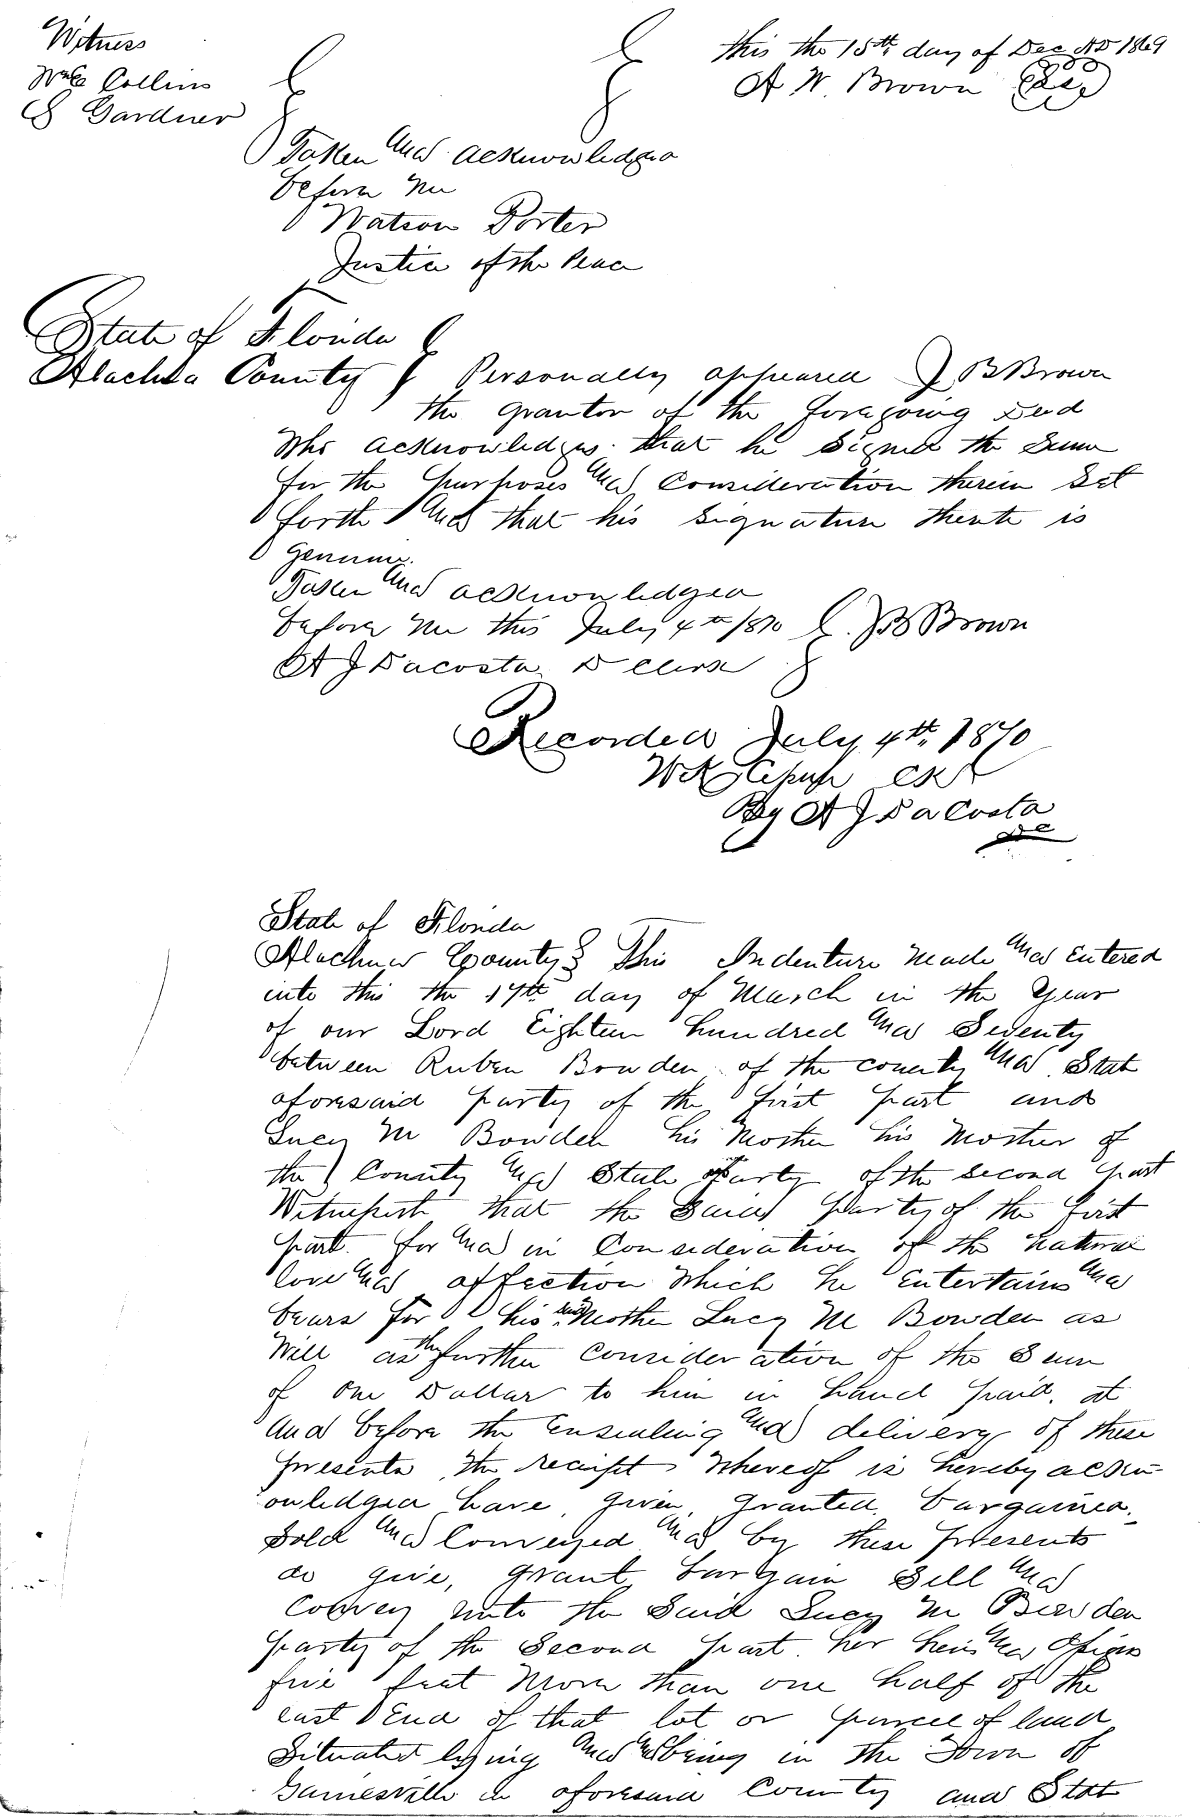 Witness
Wm C Collins
S Gardner
this the 15th day of Dec AD 1869
A W. Brown Seal
Taken and acknowledged
before me
Watson Porter
Justice of the Peace
State of Florida
Alachua County } Personally appeared J B Brown
the grantor of the foregoing Deed
Who acknowledges that he Signed the Same
for the purposes and Consideration therein Set
forth and that his Signature thereto is
genuine.
Taken and acknowledged
before me this July 4th 1870 J B Brown
A J Dacosta D Clerk
Recorded July 4th 1870
Clk
By A J DaCosta
DC
State of Florida
Alachua County } This Indenture made and entered
into this the 17th day of March in the Year
of our Lord Eighteen hundred and Seventy
between Ruben Bowden of the county and State
aforesaid party of the first part and
Lucy M Bowden his Mother his Mother of
the County and State party of the second part
Witnesseth that the Said party of the first
part for and in Consideration of the natural
love and affection which he entertains and
bears for his said Mother Lucy M Bowden as
Well as the further consideration of the Sum
of One Dollar to him in hand paid, at
and before the ensealing and delivery of these
presents the receipt whereof is hereby ackn-
owledged have given, granted, bargained,
Sold and Conveyed and by these presents
do give, grant, bargain Sell and
Convey unto the Said Lucy M Bowden
party of the Second part her heirs and assigns
five feet more than one half of the
east End of that lot or parcel of land
Situated lying and being in the Town of
Gainesville in aforesaid County and State